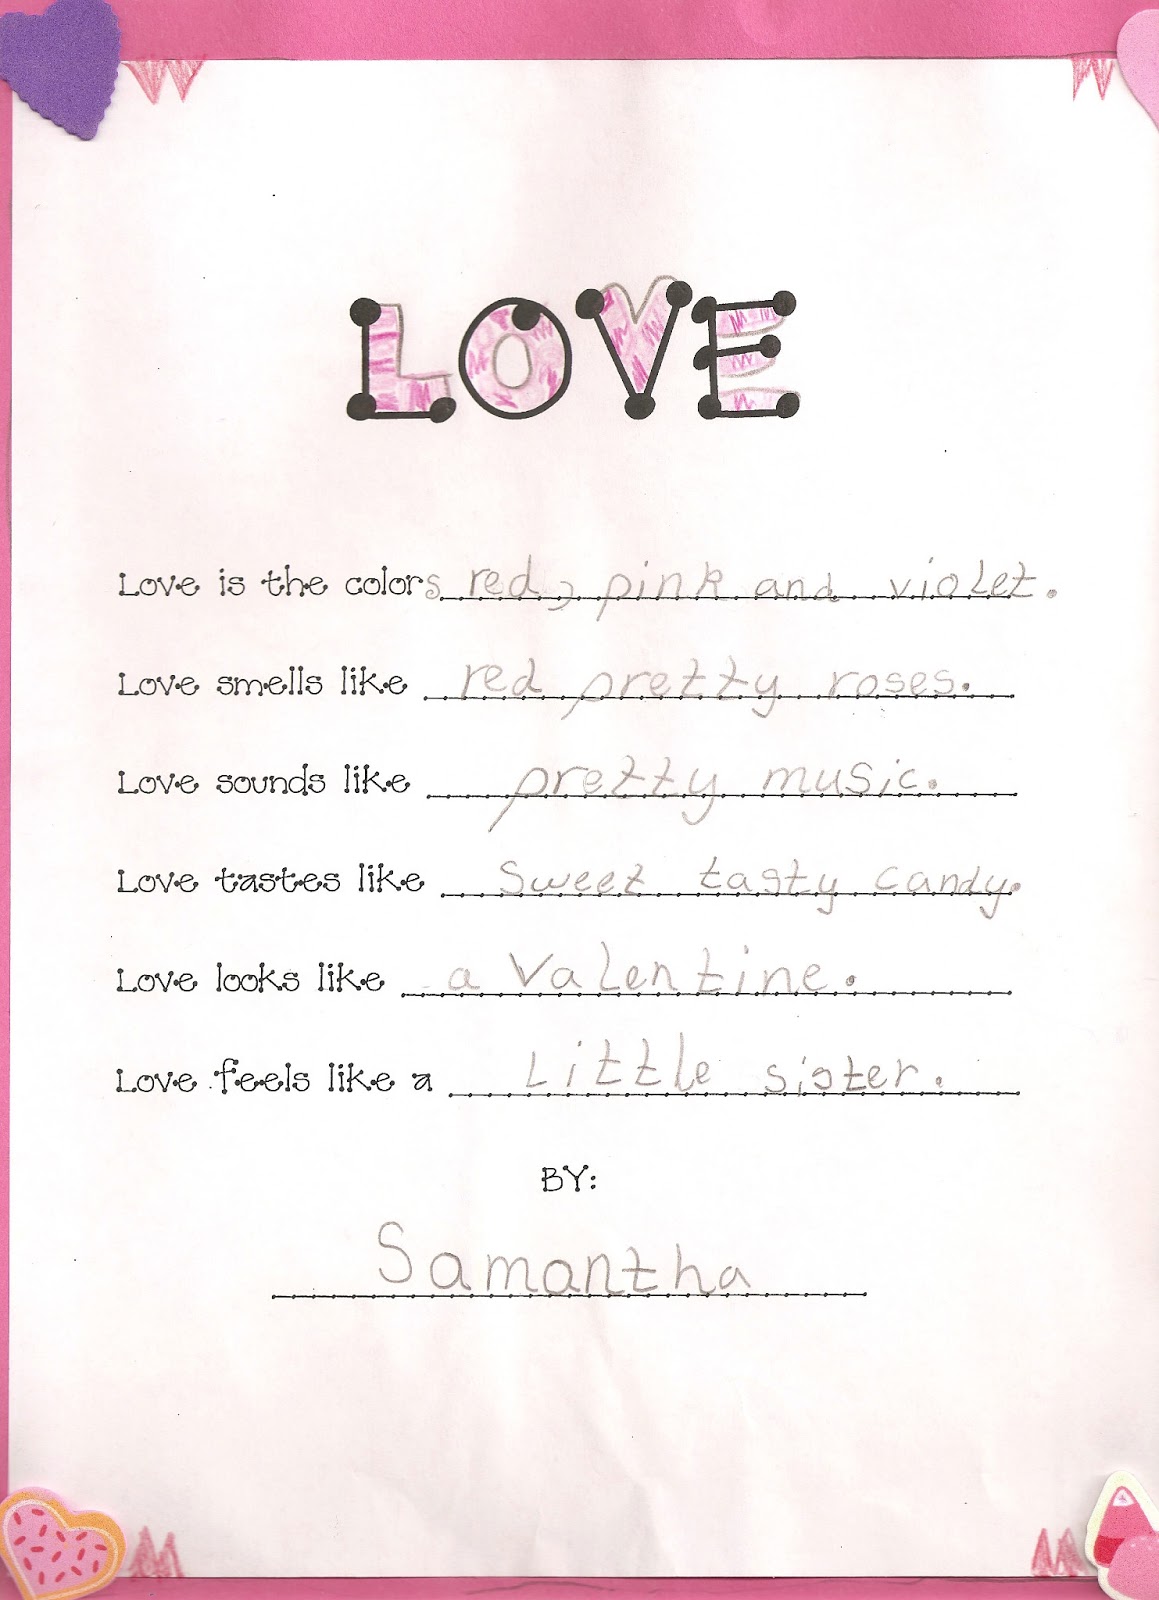 LOVE
Love is the colors red, pink and violet.
Love smells like red pretty roses.
Love sounds like pretty music.
Love tastes like Sweet tasty candy.
Love looks like a Valentine.
Love feels like a Little sister.
BY:
Samantha